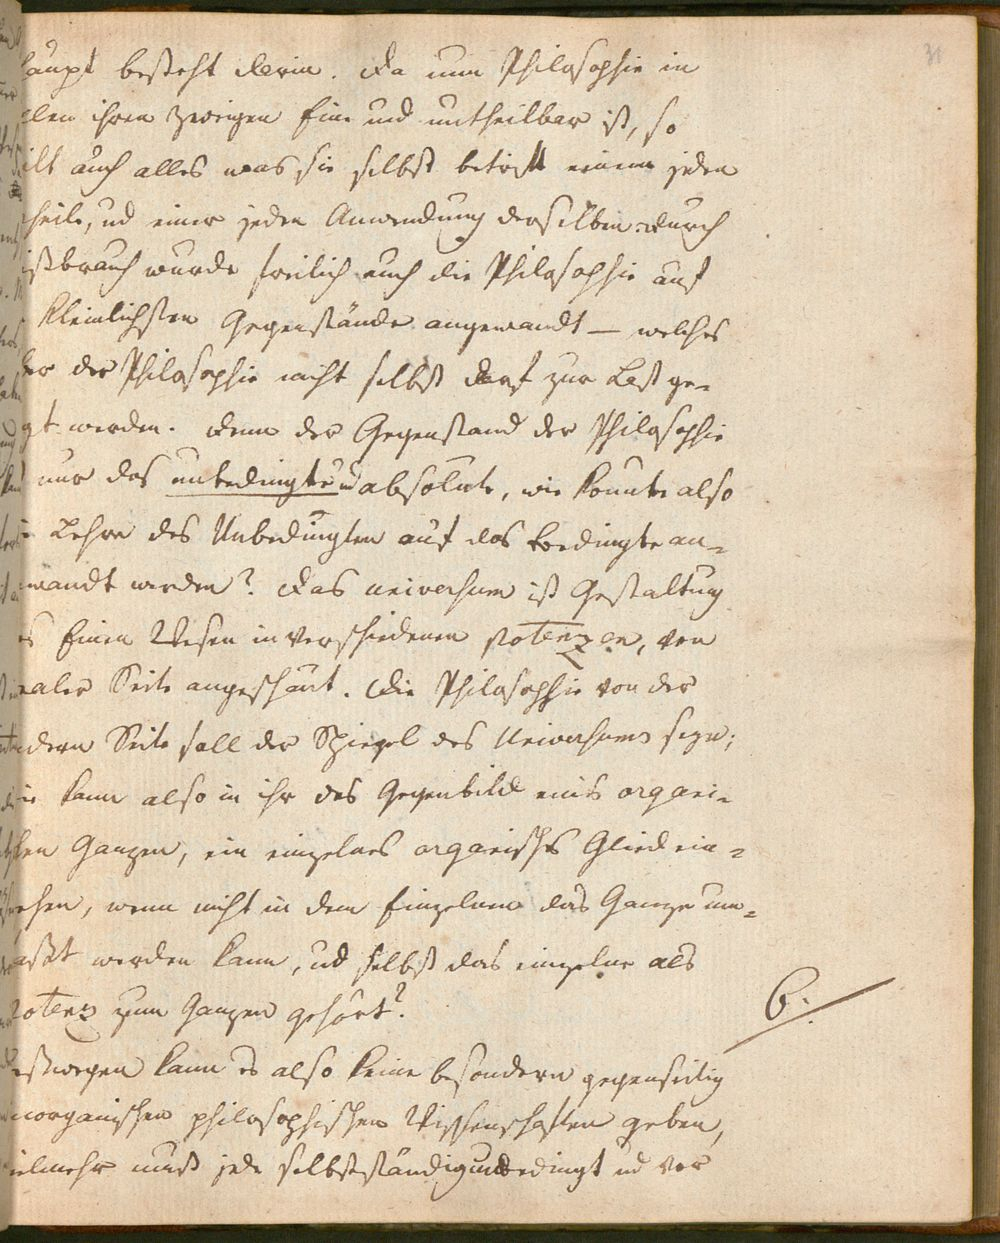 31
haupt besteht darin. Da nun Philosophie in
llen ihren Zweigen Eine und untheilbar ist, so
ilt auch alles was sie selbst betrift einem jeden
heile, ud einer jeden Anwendung derselben. durch
ißbrauch wurde freilich auch die Philosophie auf
kleinlichsten Gegenstände angewandt — welches
ber der Philosophie nicht selbst darf zur Last ge-
gt werden. denn der Gegenstand der Philosophie
nur das unbedingte ud absolute, wie konnte also
e Lehre des Unbedingten auf das bedingte an-
wandt werden? Das universum ist Gestaltung
s Einen Wesen in verschiedenen Potenzen, von
ealer Seite angeschaut. Die Philosophie von der
ndern Seite soll der Spiegel des Universums seyn;
ie kann also in ihr das Gegenbild eines organi-
hen Ganzen, ein einzelnes organisches Glied ein-
ehen, wenn nicht in dem Einzelnen das Ganze um-
aßt werden kann, ud selbst das einzelne als
Potenz zum Ganzen gehört?
6.
eßwegen kann es also keine besondern gegenseitig
norganischen philosophischen Wissenschaften geben,
ielmehr muß jede selbstständig unbedingt ud vor